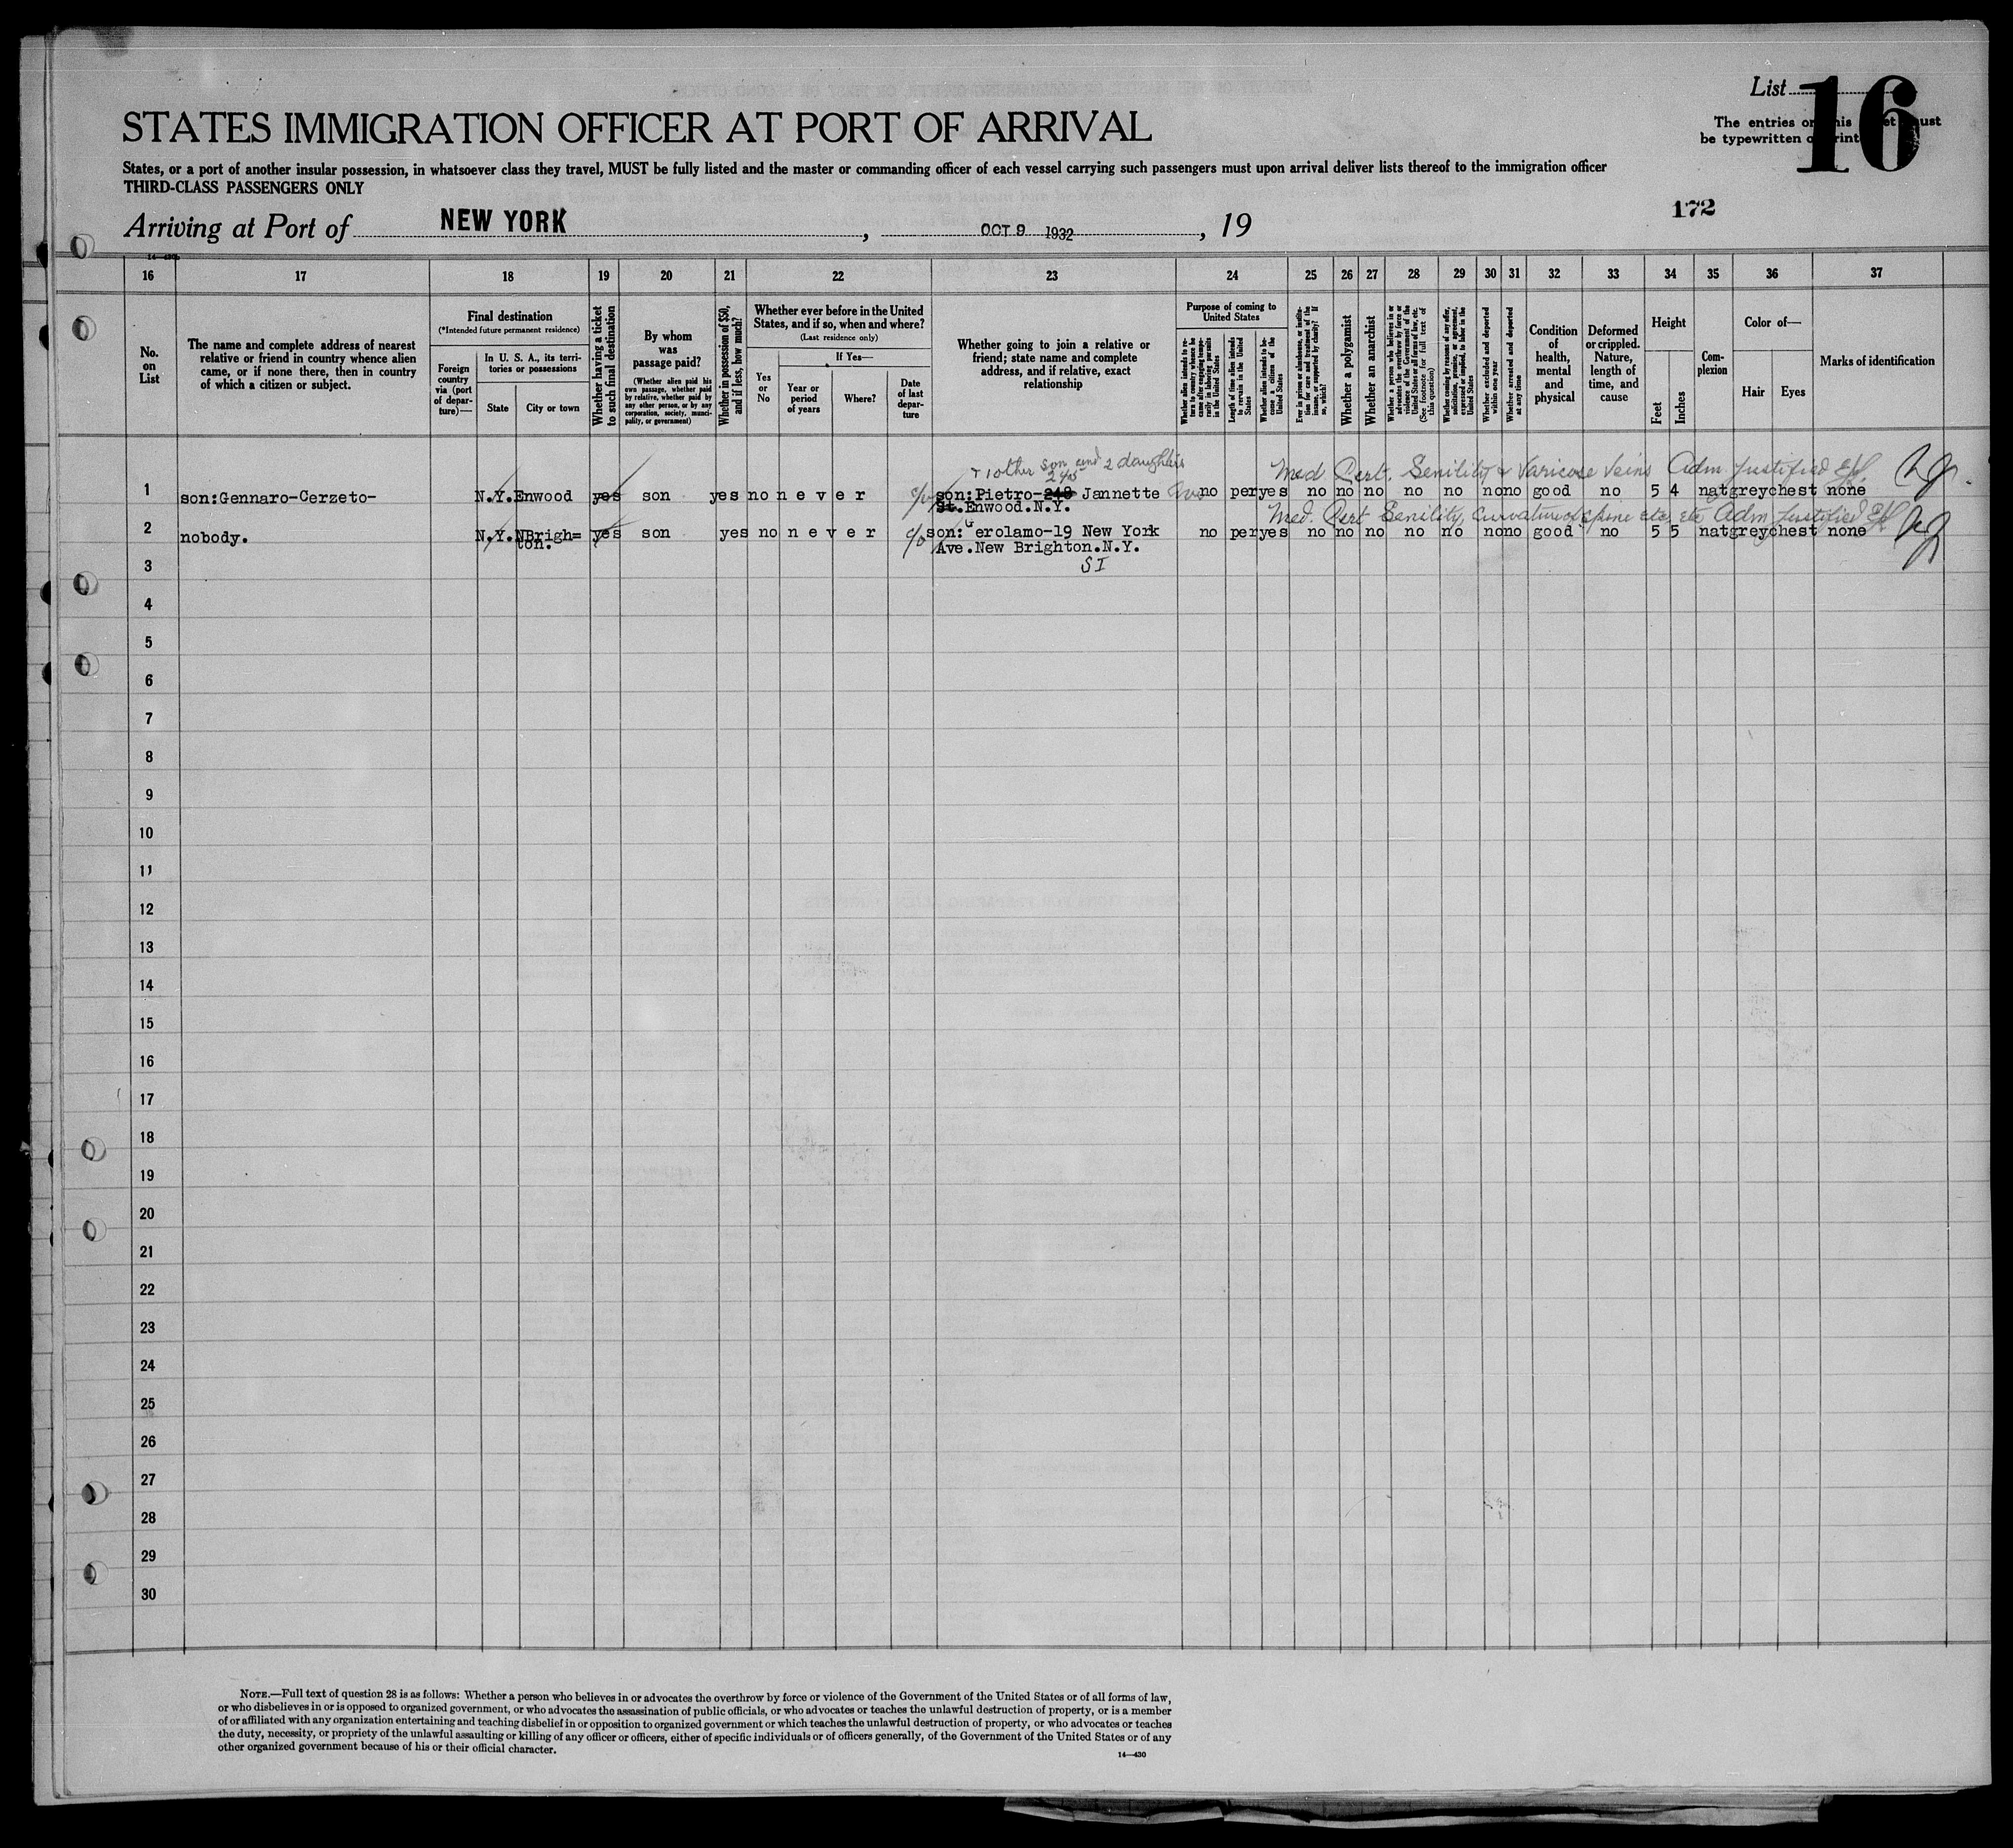 List
16
STATES IMMIGRATION OFFICER AT PORT OF ARRIVAL
The entries on this
must
be typewritten or print
States, or a port of another insular possession, in whatsoever class they travel, MUST be fully listed and the master or commanding officer of each vessel carrying such passengers must upon arrival deliver lists thereof to the immigration officer
THIRD-CLASS PASSENGERS ONLY
172
Arriving at Port of NEW YORK, OCT 9 1932, 19
14-430
16 17 18 19 20 21 22 23 24 25 26 27 28 29 30 31 32 33 34 35 36 37
No. on List
The name and complete address of nearest
relative or friend in country whence alien
came, or if none there, then in country
of which a citizen or subject.
Final destination
(*Intended future permanent residence)
Foreign country via (port of departure)—
In U. S. A., its territories or possessions
State
City or town
Whether having a ticket to such final destination
By whom was passage paid?
(Whether alien paid his own passage, whether paid by relative, whether paid by any other person, or by any corporation, society, municipality, or government)
Whether in possession of $50, and if less, how much?
Whether ever before in the United States, and if so, when and where?
(Last residence only)
Yes or No
If Yes—
Year or period of years
Where?
Date of last departure
Whether going to join a relative or
friend; state name and complete
address, and if relative, exact
relationship
Purpose of coming to United States
Whether alien intends to return to country whence he came after engaging temporarily in laboring pursuits in the United States
Length of time alien intends to remain in the United States
Whether alien intends to become a citizen of the United States
Ever in prison or almshouse, or institution for care and treatment of the insane, or supported by charity? If so, which?
Whether a polygamist
Whether an anarchist
Whether a person who believes in or advocates the overthrow by force or violence of the Government of the United States or all forms of law, etc. (See footnote for full text of this question)
Whether coming by reasons of any offer, solicitation, promise, or agreement, expressed or implied, to labor in the United States
Whether excluded and deported within one year
Whether arrested and deported at any time
Condition of health, mental and physical
Deformed or crippled. Nature, length of time, and cause
Height
Feet
Inches
Complexion
Color of—
Hair
Eyes
Marks of identification
+ 1 other son and 2 daughters
Med Cert. Senility & Varicose Veins Adm. Justified
1 son:Gennaro-Cerzeto- N.Y. Enwood yes son yes no n e v e r c/o son:Pietro-248 Jannette no per yes no no no no no no no good no 5 4 nat grey chest none
St.Enwood.N.Y.
Med. Cert Senility, Curvature of spine etc, etc Adm Justified
2 nobody. N.Y. NBrigh=
ton. yes son yes no n e v e r c/o son: Gerolamo-19 New York no per yes no no no no no no no good no 5 5 nat grey chest none
Ave.New Brighton.N.Y.
SI
3
4
5
6
7
8
9
10
11
12
13
14
15
16
17
18
19
20
21
22
23
24
25
26
27
28
29
30
NOTE.—Full text of question 28 is as follows: Whether a person who believes in or advocates the overthrow by force or violence of the Government of the United States or of all forms of law,
or who disbelieves in or is opposed to organized government, or who advocates the assassination of public officials, or who advocates or teaches the unlawful destruction of property, or is a member
of or affiliated with any organization entertaining and teaching disbelief in or opposition to organized government or which teaches the unlawful destruction of property, or who advocates or teaches
the duty, necessity, or propriety of the unlawful assaulting or killing of any officer or officers, either of specific individuals or of officers generally, of the Government of the United States or of any
other organized government because of his or their official character.
14—430